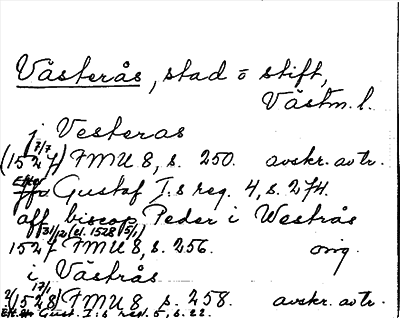 Västerås, stad o stift,
Västm. l.
j Vesteras
7/7
(1527) FMU 8, s. 250. avskr. av tr.
Efter Gustaf I:s reg. 4, s. 274.
aff biscop Peder i Westrås
31/12 (el. 1528 5/1)
1527 FMU 8, s. 256. orig.
i Västrås
17/1
(1528) FMU 8, s. 258. avskr. av tr.
Eft. Gust. I:s reg. 5, s. 22.